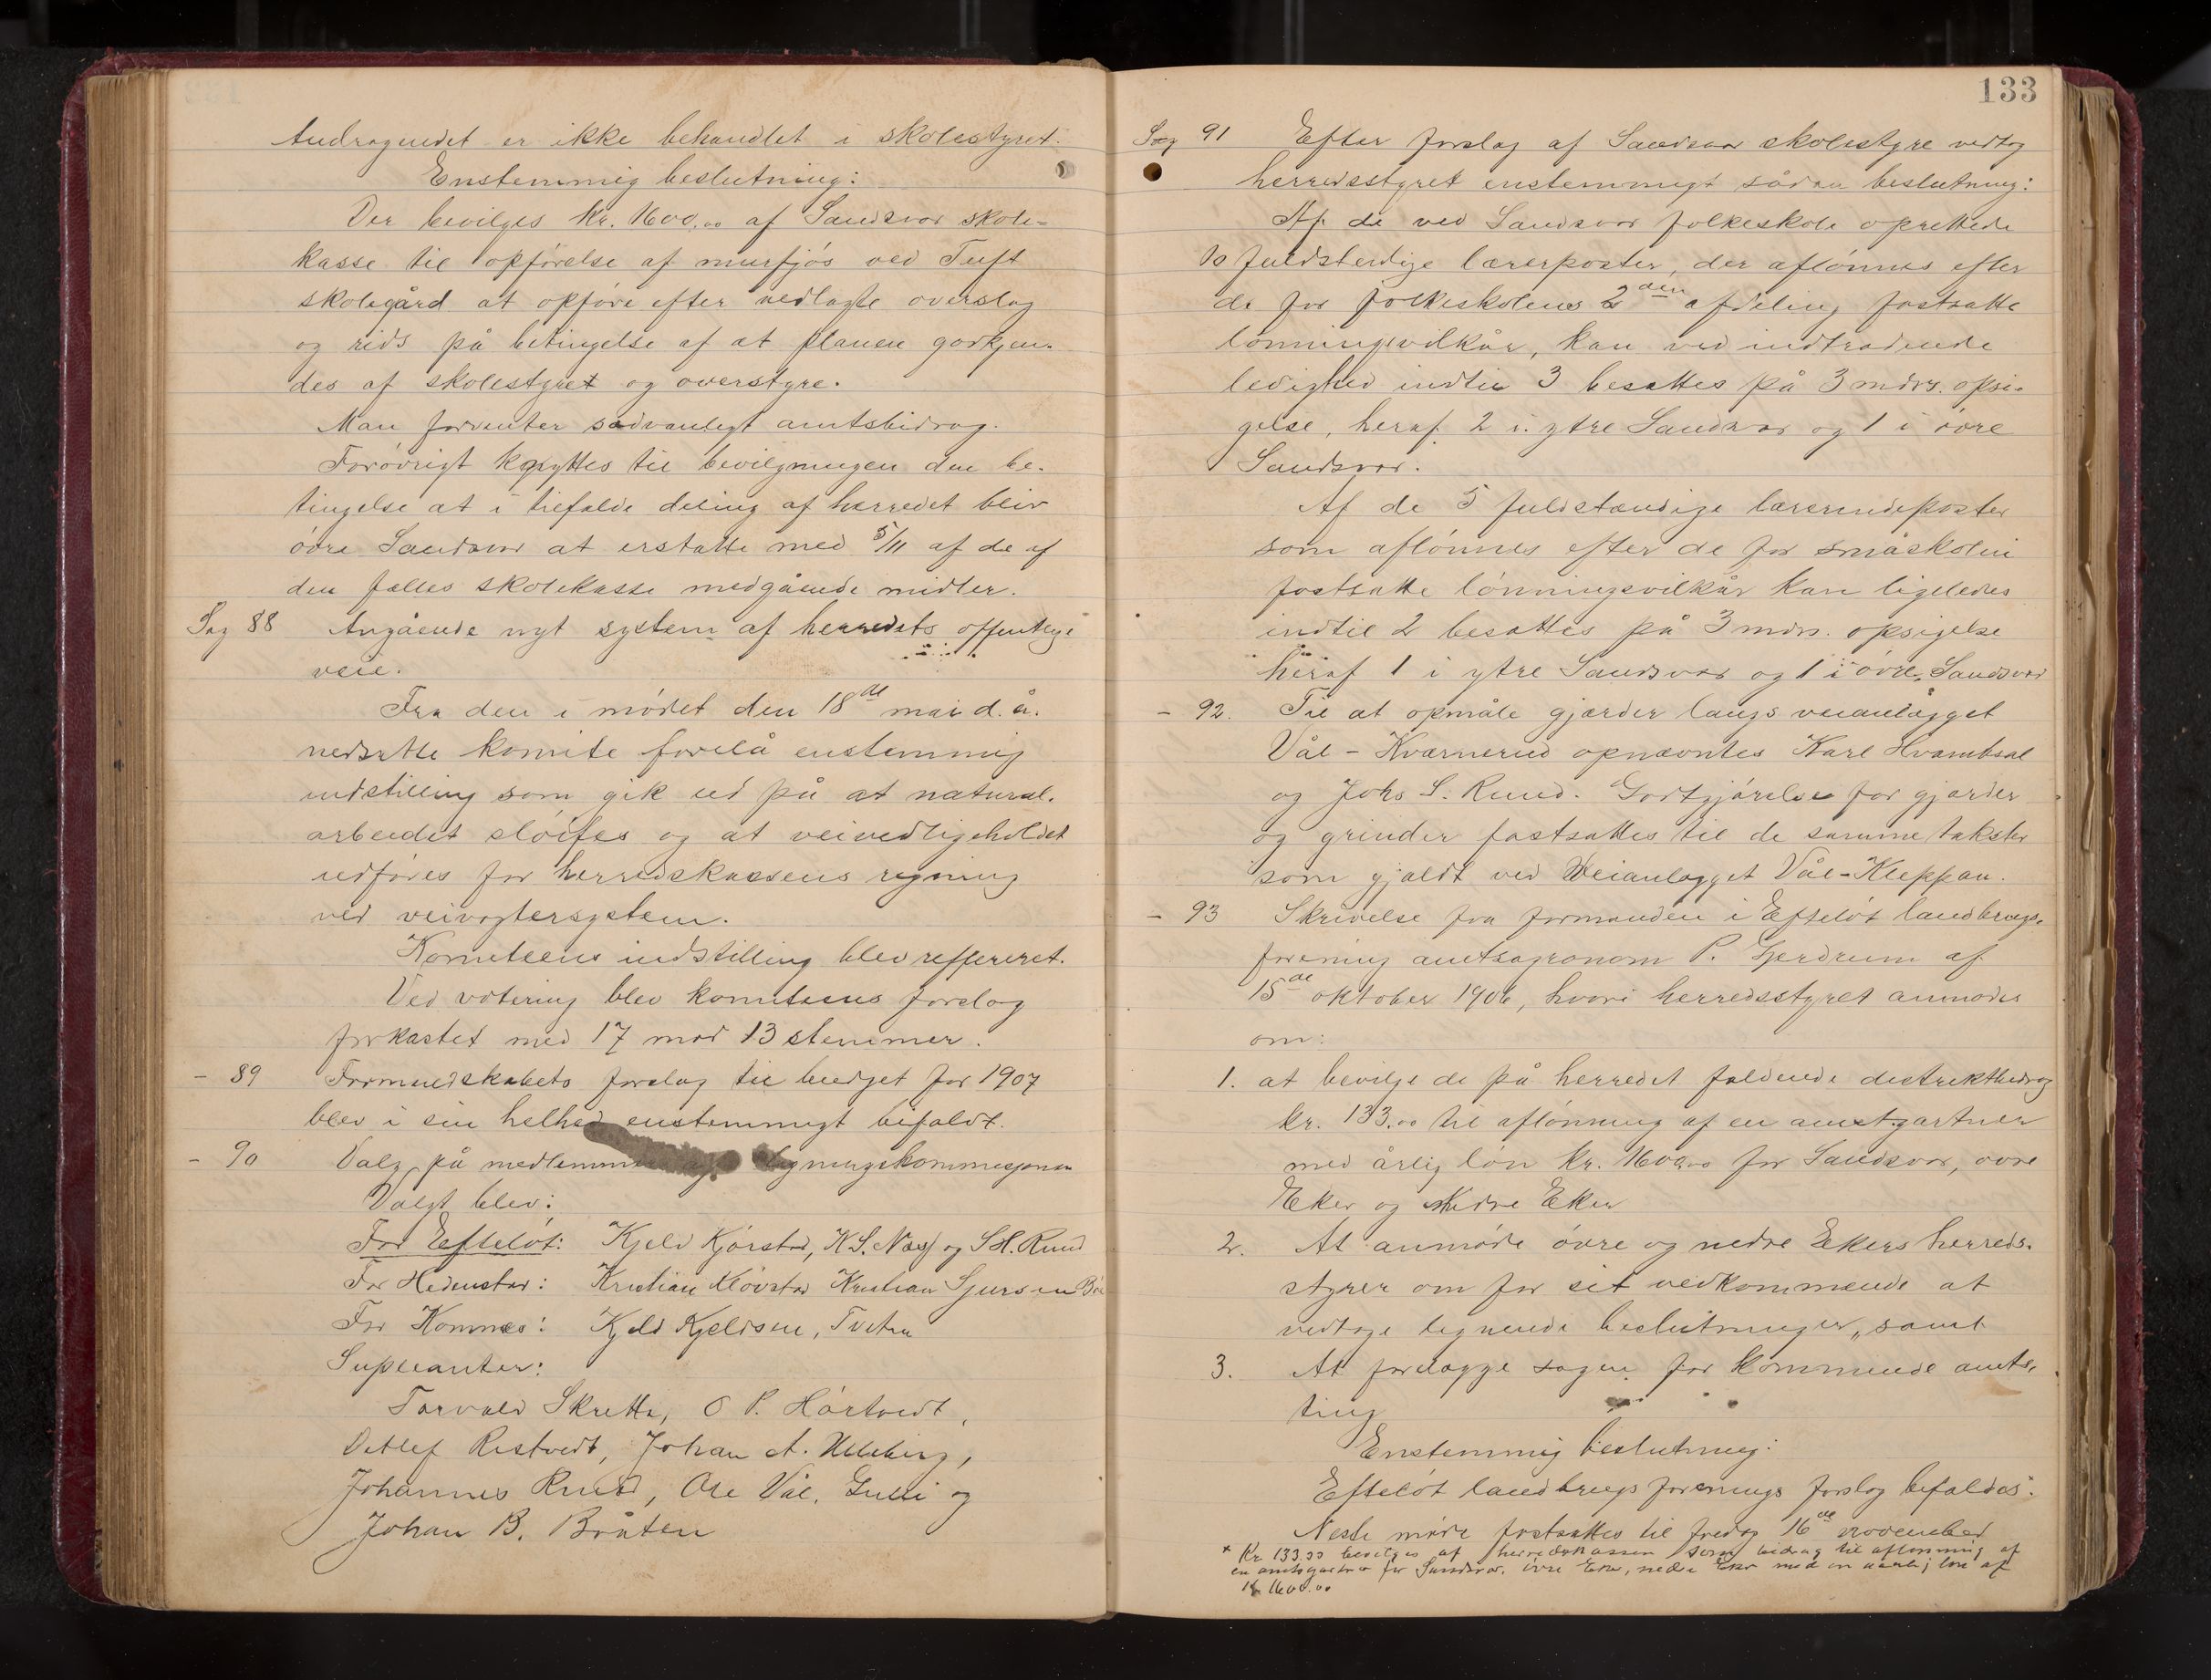 Andragendet er ikke behandlet i skolestyret.
Enstemmig beslutning:
Der bevilges kr. 1600.00 af Sandsvær skole-
kasse til opførelse af murfjøs ved Tuft
skolegård at opføre efter vedlagte overslag
og rids på betingelse af at planen godkjen-
des af skolestyret og overstyre.
Man forventer sædvanligt amtsbidrag.
Forøvrigt knyttes til bevilgningen den be-
tingelse at i tilfælde deling af herredet bliv
øvre Sandsvær at erstatte med 5/11 af de af
den fælles skolekasse medgåede midler.
Sag 88 Angående nyt system af herredets offentlige
veie.
Fra den i mødet den 18de mai d.å.
nedsatte komite forelå enstemmig
indstilling som gik ud på at natural-
arbeidet sløifes og at veivedligeholdet
udføres for herredskassens regning
ved veivogtersystem.
Komiteens indstilling blev reffereret.
Ved votering blev komiteens forslag
forkastet med 17 mod 13 stemmer.
- 89 Formandskabets forslag til budget for 1907
blev i sin helhed enstemmigt bifaldt.
- 90 Valg på medlemmer af ligningskommisjonen
Valgt blev:
For Efteløt: Kjeld Kjørstad, K S. Næss og S H. Ruud
For Hedenstad: Kristian Kløvstad Kristian Sjursen Bøe
For Komnes: Kjeld Kjeldsen, Tveten
Supleanter:
Torvald Skretta, O P. Hørtvedt,
Detlef Ristvedt, Johan A. Ulleberg,
Johannes Ruud, Ole Vål, Gulli og
Johan B. Bråten
133
Sag 91 Efter forslag af Sandsvær skolestyre vedtog
herredsstyret enstemmigt sådan beslutning:
Af de ved Sandsvær folkeskole oprettede
10 fuldstendige lærerposter, der aflønnes efter
de for folkeskolens 2den afdeling fastsatte
lønningsvilkår, kan ved indtrædende
ledighed indtil 3 besættes på 3 mdrs. opsi-
gelse, heraf 2 i ytre Sandsvær og 1 i øvre
Sandsvær.
Af de 5 fuldstændige lærerindeposter
som aflønnes efter de for småskolen
fastsatte lønningsvilkår kan ligeledes
indtil 2 besættes på 3 mdrs. opsigelse
heraf 1 i ytre Sandsvær og 1 i øvre Sandsvær
- 92. Til at opmåle gjærder langs veianlægget
Vål - Kværnerud opnævntes Karl Hvambsal
og Johs S. Ruud. Godtgjørelse for gjærder
og grinder fastsattes til de samme takster
som gjaldt ved Veianlægget Vål-Kleppan.
- 93 Skrivelse fra formanden i Efteløt landbrugs-
forening amtsagronom P. Gjerdrum af
15de oktober 1906, hvori herredsstyret anmodes
om:
1. at bevilge de på herredet faldende distriktbidrag
kr. 133.00 til aflønning af en amtsgartner
med årlig løn kr. 1600.00 for Sandsvær, øvre
Eker og Nedre Eker
2. At anmode øvre og nedre Ekers herreds-
styrer om for sit vedkommende at
vedtage lignende beslutninger, samt
3. At forelægge sagen for kommende amts-
ting
Enstemmig beslutning:
Efteløt landbrugsforenings forslag bifaldes.
Neste møde fastsattes til fredag 16de november
* Kr 133.33 bevilges af herredskassen som bidrag til aflønning af
en amtsgartner for Sandsvær, øvre Eker, nedre Eker med en aarlig løn af
kr 1600.00